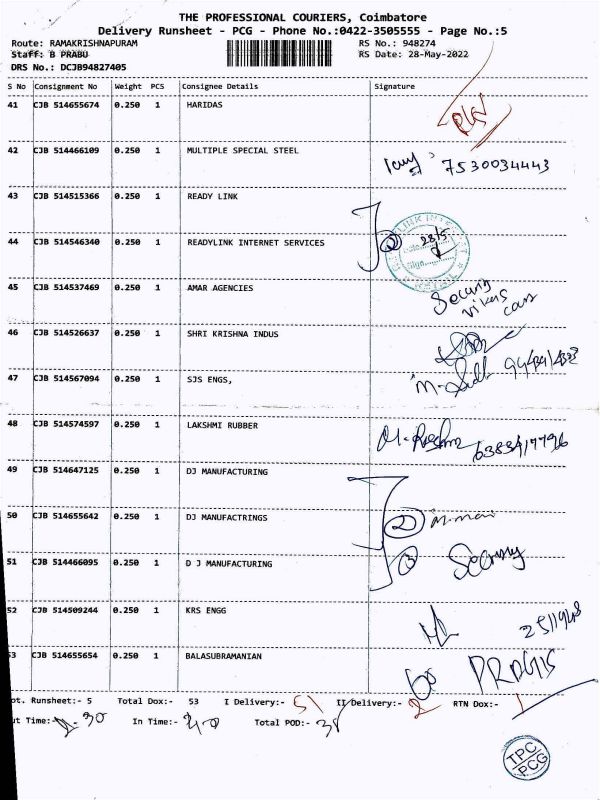 THE PROFESSIONAL COURIERS, Coimbatore
Delivery Runsheet - PCG - Phone No.:0422-3505555 - Page No.:5
Route: RAMAKRISHNAPURAM RS No.: 948274
Staff: B PRABU RS Date: 28-May-2022
DRS No.: DCJB94827405
S No Consignment No Weight PCS Consignee Details Signature
41 CJB 514655674 0.250 1 HARIDAS
42 CJB 514466109 0.250 1 MULTIPLE SPECIAL STEEL 7530034443
43 CJB 514515366 0.250 1 READY LINK
44 CJB 514546340 0.250 1 READYLINK INTERNET SERVICES 2 28/5
45 CJB 514537469 0.250 1 AMAR AGENCIES
46 CJB 514526637 0.250 1 SHRI KRISHNA INDUS
47 CJB 514567094 0.250 1 SJS ENGS,
48 CJB 514574597 0.250 1 LAKSHMI RUBBER
49 CJB 514647125 0.250 1 DJ MANUFACTURING
50 CJB 514655642 0.250 1 DJ MANUFACTRINGS 2
51 CJB 514466095 0.250 1 D J MANUFACTURING 3
52 CJB 514509244 0.250 1 KRS ENGG
3 CJB 514655654 0.250 1 BALASUBRAMANIAN
ot. Runsheet:- 5 Total Dox:- 53 I Delivery:- 51 II Delivery:- 2 RTN Dox:- 1
ut Time:- In Time:- Total POD:-
TPC
PCG